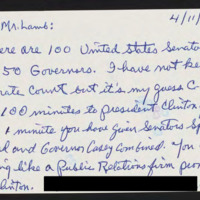 4/11/
Mr. Lamb:
ere are 100 United States Senato
50 Governors. I have not ke
rate Count but it's my guess C-
100 minutes to president Clinton
1 minute you have given Senators Sp
d and Governor Casey Combined. You
ng like a Public Relations firm pro
linton.